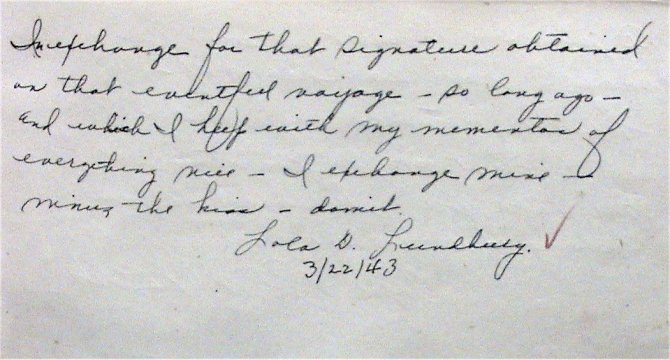 In exchange for that signature obtained
on that eventful voyage - so long ago -
and which I keep with my mementos of
everything nice - I exchange mine -
minus the kiss - damit.
Lola D. Lundburg.
3/22/43